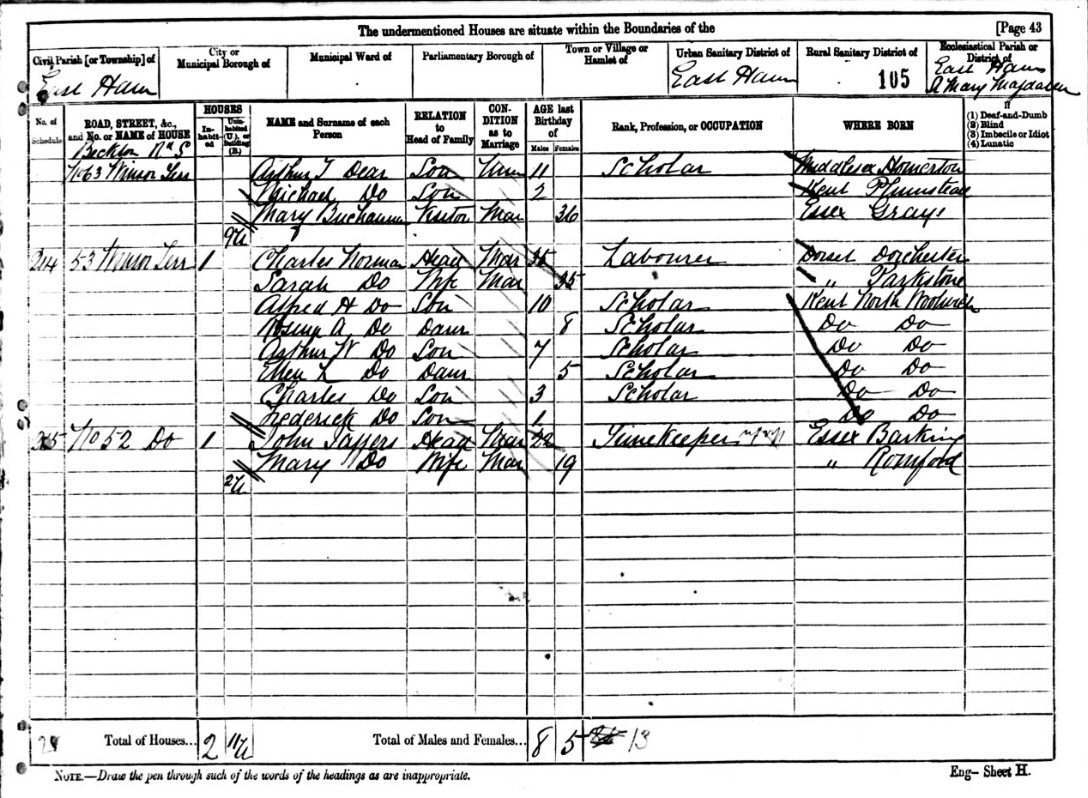 The undermentioned Houses are situate within the Boundaries of the [Page 43
Civil Parish [or Township] of City or Municipal Borough of Municipal Ward of Parliamentary Borough of Town or Village or Hamlet of Urban Sanitary District of Rural Sanitary District of Ecclesiastical Parish or District of
East Ham East Ham 105 East Ham St Mary Magdalen
No. of Schedule ROAD, STREET, &c., and No. or NAME of HOUSE HOUSES Inhabited Uninhabited (U.), or Building (B.) NAME and Surname of each Person RELATION to Head of Family CONDITION as to Marriage AGE last Birthday of Males Females Rank, Profession, or OCCUPATION WHERE BORN If (1) Deaf-and-Dumb (2) Blind (3) Imbecile or Idiot (4) Lunatic
Beckton Rd S
No 63 Winsor Terr Arthur T Dear Son Unm 11 Scholar Middlesex Homerton
Michael Do Son 2 Kent Plumstead
Mary Buchannan Visitor Mar 36 Essex Grays
9U
214 53 Winsor Terr 1 Charles Norman Head Mar 35 Labourer Dorset Dorchester
Sarah Do Wife Mar 35 " Parkstone
Alfred H Do Son 10 Scholar Kent North Woolwich
Rosina A Do Daur 8 Scholar Do Do
Arthur W Do Son 7 Scholar Do Do
Ellen L Do Daur 5 Scholar Do Do
Charles Do Son 3 Scholar Do Do
Frederick Do Son 1 Do Do
215 No 52 Do 1 John Do Head Mar 22 Timekeeper Essex Barking
Mary Do Wife Mar 19 " Romford
2U
Total of Houses... 2 11U Total of Males and Females... 8 5 13
NOTE.—Draw the pen through such of the words of the headings as are inappropriate. Eng— Sheet H.